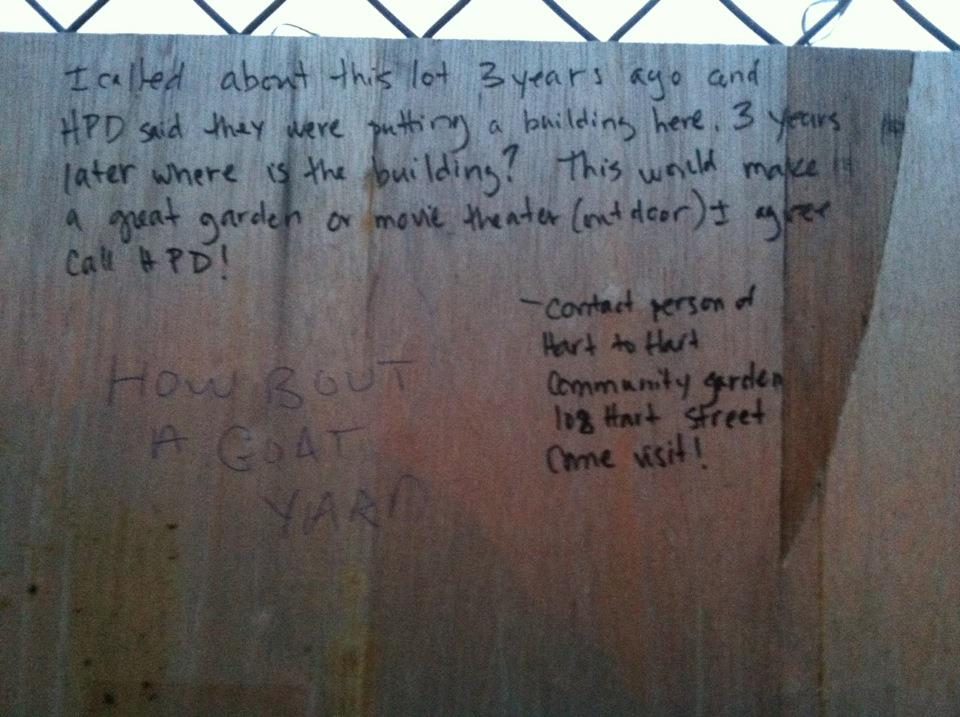 I called about this lot 3 years ago and
HPD said they were putting a building here. 3 years
later where is the building? This would make
a great garden or movie theater (outdoor) I agree
Call HPD!
- Contact person of
Hart to Hart
Community garden
108 Hart Street
Come visit!
HOW BOUT
A GOAT
YARD